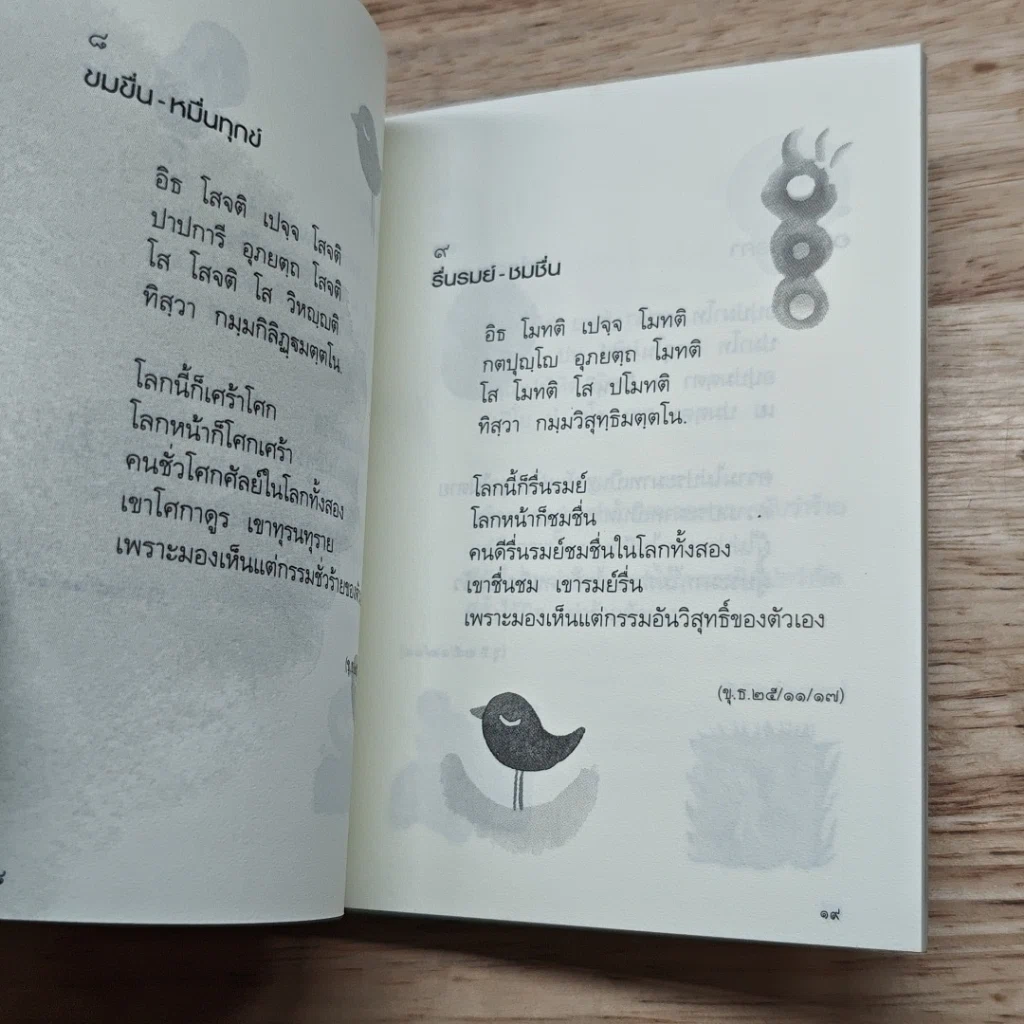 ๘
ขมขื่น-หมื่นทุกข์
อิธ โสจติ เปจฺจ โสจติ
ปาปการี อุภยตฺถ โสจติ
โส โสจติ โส วิหญฺญติ
ทิสฺวา กมฺมกิลิฏฺฐมตฺตโน.
โลกนี้ก็เศร้าโศก
โลกหน้าก็โศกเศร้า
คนชั่วโศกศัลย์ในโลกทั้งสอง
เขาโศกาดูร เขาทุรนทุราย
เพราะมองเห็นแต่กรรมชั่วร้ายของ
๙
รื่นรมย์-ชมชื่น
อิธ โมทติ เปจฺจ โมทติ
กตปุญฺโญ อุภยตฺถ โมทติ
โส โมทติ โส ปโมทติ
ทิสฺวา กมฺมวิสุทฺธิมตฺตโน.
โลกนี้ก็รื่นรมย์
โลกหน้าก็ชมชื่น
คนดีรื่นรมย์ชมชื่นในโลกทั้งสอง
เขาชื่นชม เขารมย์รื่น
เพราะมองเห็นแต่กรรมอันวิสุทธิ์ของตัวเอง
(ขุ.ธ.๒๕/๑๑/๑๗)
๑๙